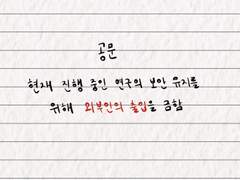 공문
현재 진행 중인 연구의 보안 유지를
위해 외부인의 출입을 금함